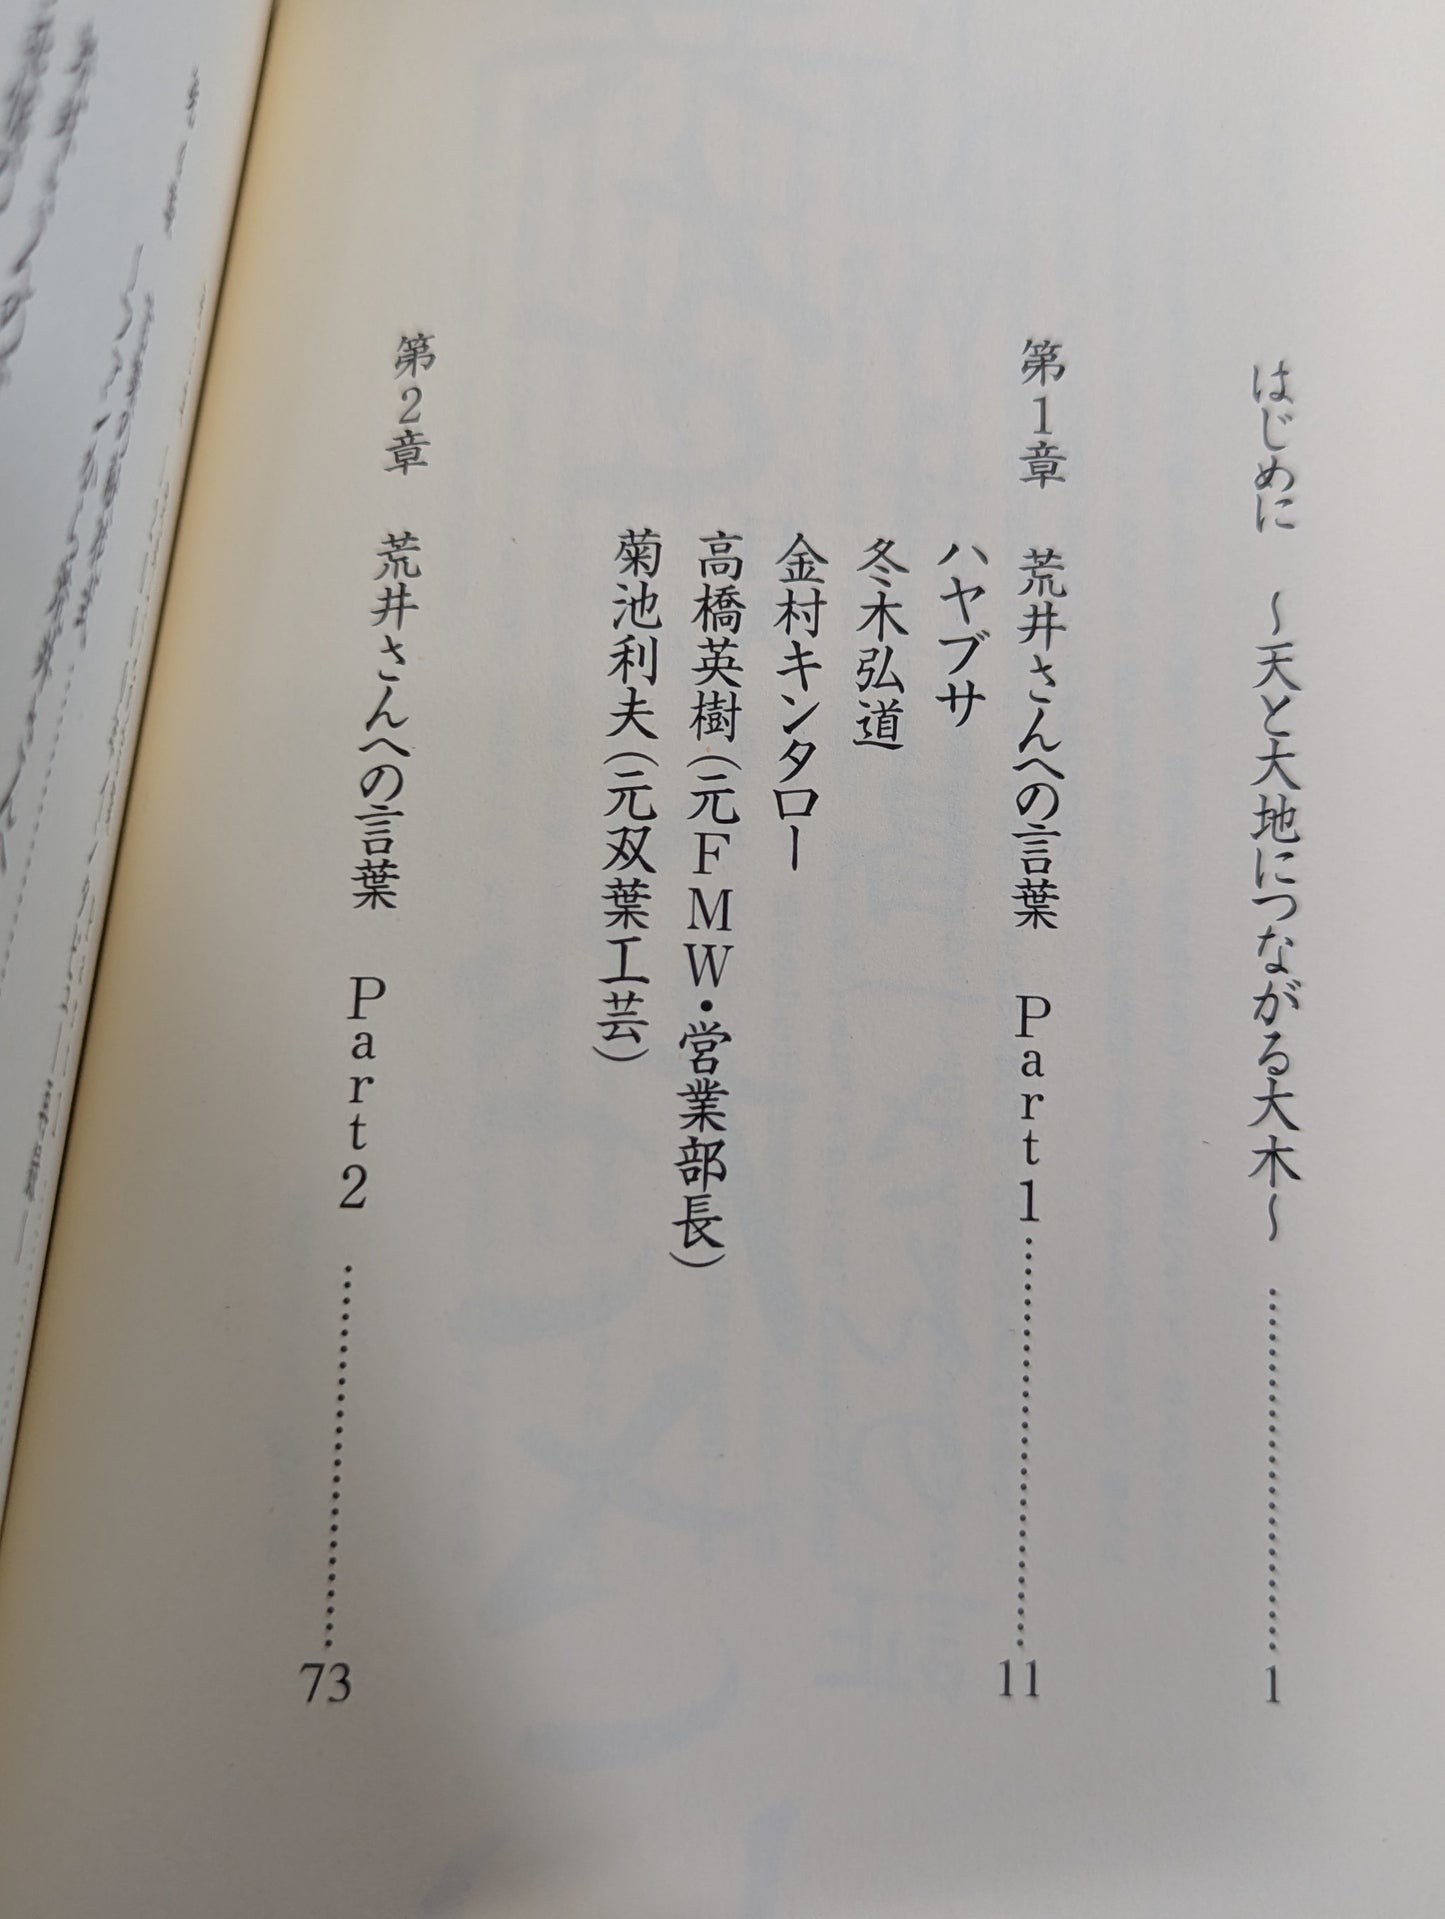 はじめに　～天と大地につながる大木～ …………………… 1
第1章　荒井さんへの言葉　Part1 …………………… 11
ハヤブサ
冬木弘道
金村キンタロー
高橋英樹（元FMW・営業部長）
菊池利夫（元双葉工芸）
第2章　荒井さんへの言葉　Part2 …………………… 73